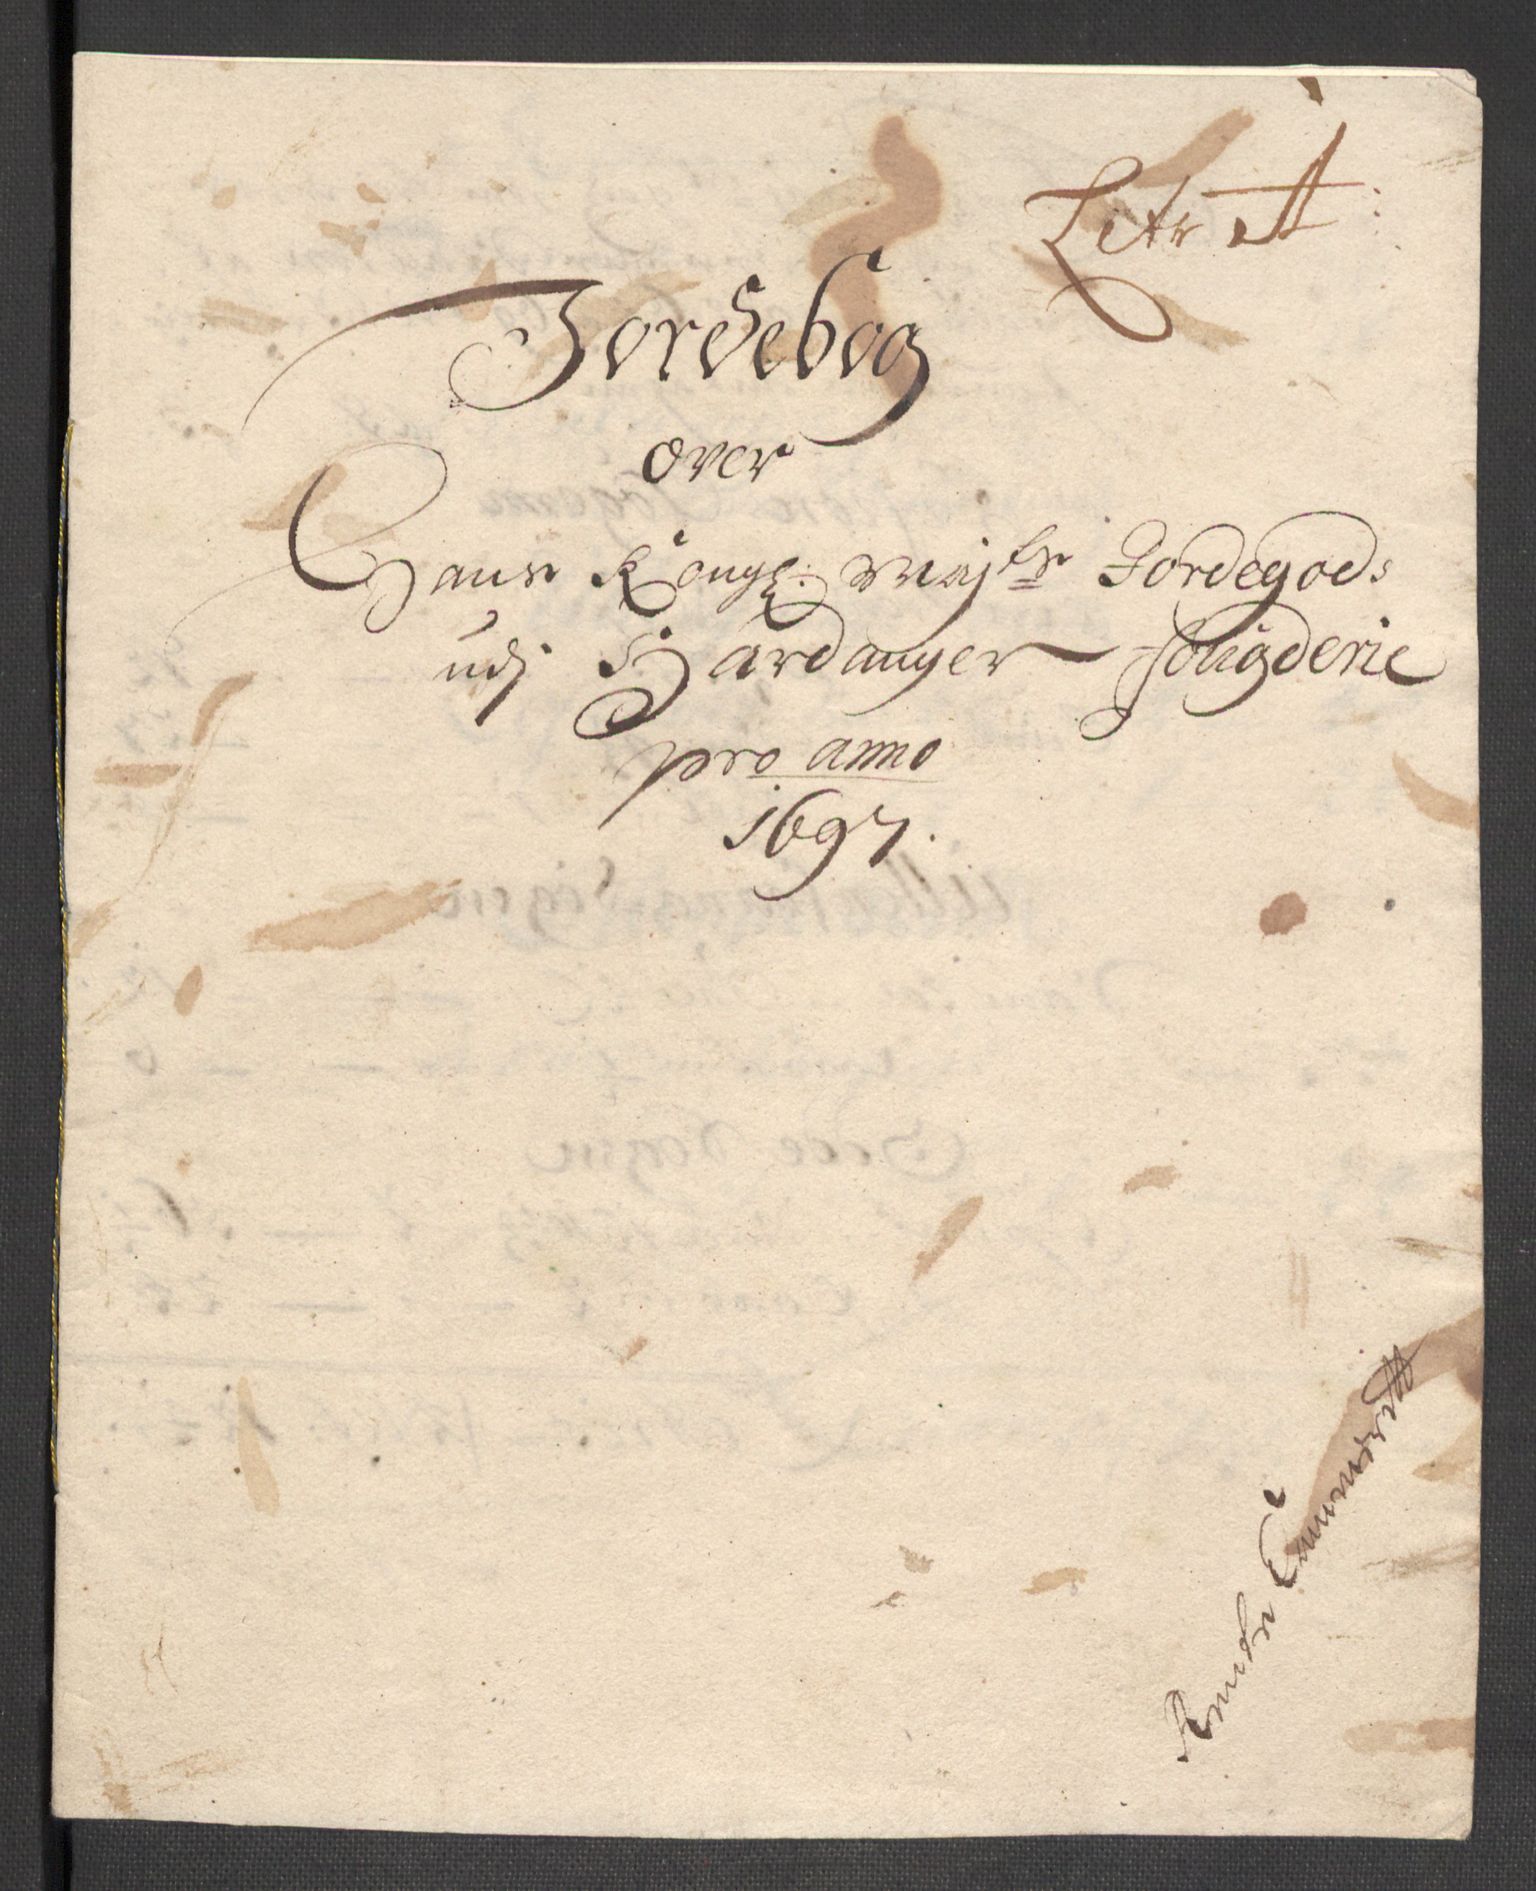 Litr A:
Jordebog
over
Hans Kongl: Maytz Jordegods
udj Hardanger Fougderie
pro anno
1697.